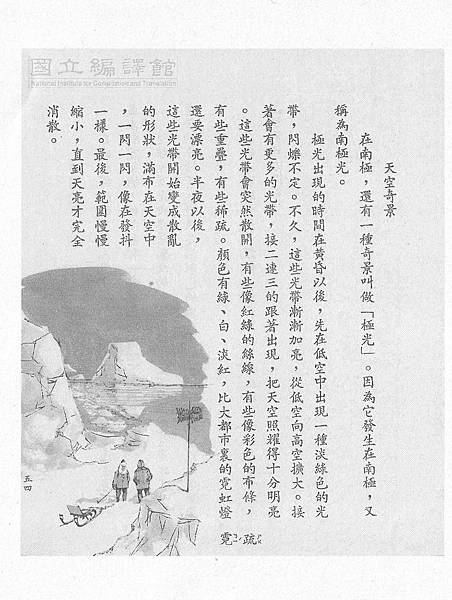 國立編譯館
National Institute for Compilation and Translation
天空奇景
在南極，還有一種奇景叫做「極光」。因為它發生在南極，又
稱為南極光。
極光出現的時間在黃昏以後，先在低空中出現一種淡綠色的光
帶，閃爍不定。不久，這些光帶漸漸加亮，從低空向高空擴大。接
著會有更多的光帶，接二連三的跟著出現，把天空照耀得十分明亮
。這些光帶會突然散開，有些像紅綠的絲線，有些像彩色的布條，
有些重疊，有些稀疏。顏色有綠、白、淡紅，比大都市裏的霓虹燈
還要漂亮。半夜以後，
這些光帶開始變成散亂
的形狀，滿布在天空中
，一閃一閃，像在發抖
一樣。最後，範圍慢慢
縮小，直到天亮才完全
消散。
疏
霓
五四